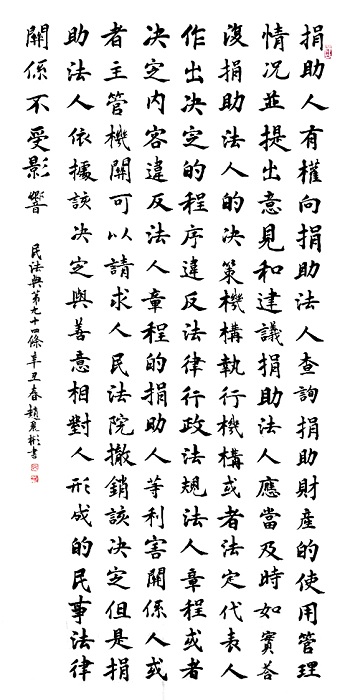 捐助人有權向捐助法人查詢捐助財產的使用管理
情况並提出意見和建議捐助法人應當及時如實答
復捐助法人的决策機構執行機構或者法定代表人
作出决定的程序違反法律行政法規法人章程或者
决定内容違反法人章程的捐助人等利害關係人或
者主管機關可以請求人民法院撤銷該决定但是捐
助法人依據該决定與善意相對人形成的民事法律
關係不受影響
民法典第九十四條辛丑春趙彬書